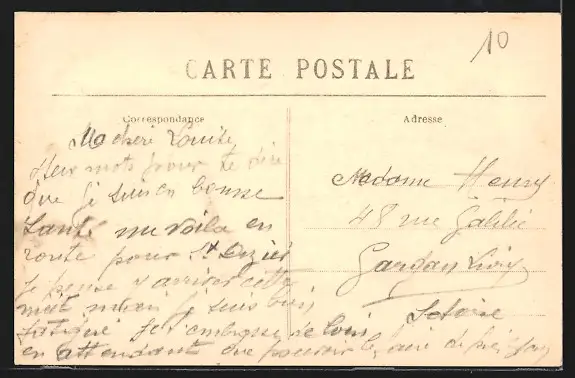 10
CARTE POSTALE
Correspondance
Ma cheré Louise,
deux mots pour te dire
que je suis en bonne
santé me voila en
route pour St Dizier
je pense y arriver cette
nuit je suis
fatigué je t'embrasse de loin
en attendant que pouvoir le faire de
Adresse
Madame Henry
48 rue Galilée
Gargan Livry